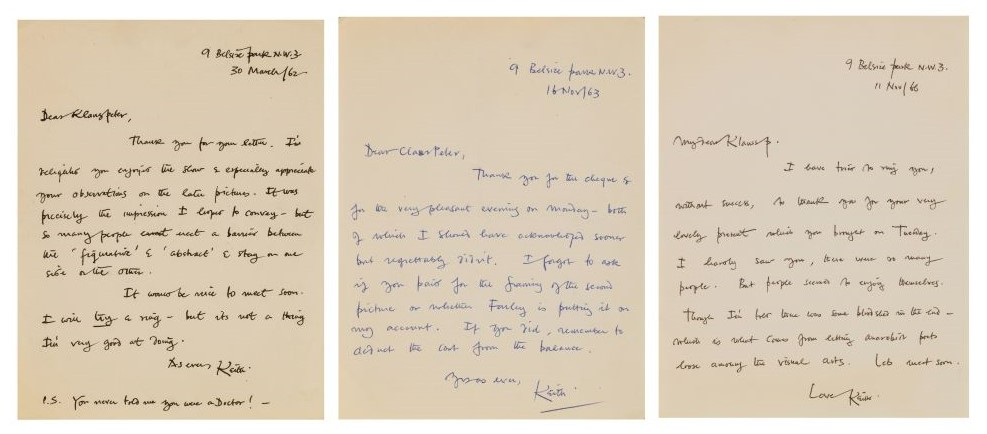 9 Belsize park N.W.3
30 March/62
Dear Klauspeter,
Thank you for your letter. I'm
delighted you enjoyed the show & especially appreciate
your observations on the later pictures. It was
precisely the impression I hoped to convey – but
so many people erect a barrier between
the 'figurative' & 'abstract' & stay on one
side or the other.
It would be nice to meet soon.
I will try a ring – but its not a thing
I'm very good at doing.
As ever, Keith.
P.S. You never told me you were a Doctor! –
9 Belsize park N.W.3.
16 Nov/63
Dear ClausPeter,
Thank you for the cheque &
for the very pleasant evening on monday – both
of which I should have acknowledged sooner
but regrettably didn't. I forgot to ask
if you paid for the framing of the second
picture or whether Farley is putting it on
my account. If you did, remember to
deduct the cost from the balance.
Yours ever,
Keith
9 Belsize park N.W.3.
11 Nov/66
My dear Klaus p.
I have tried to ring you,
without success, to thank you for your very
lovely present which you brought on Tuesday.
I hardly saw you, there were so many
people. But people seemed to enjoy themselves.
Though I'm told there was some bloodshed in the end –
which is what comes from letting anarchist poets
loose among the visual arts. Lets meet soon.
Love Keith.